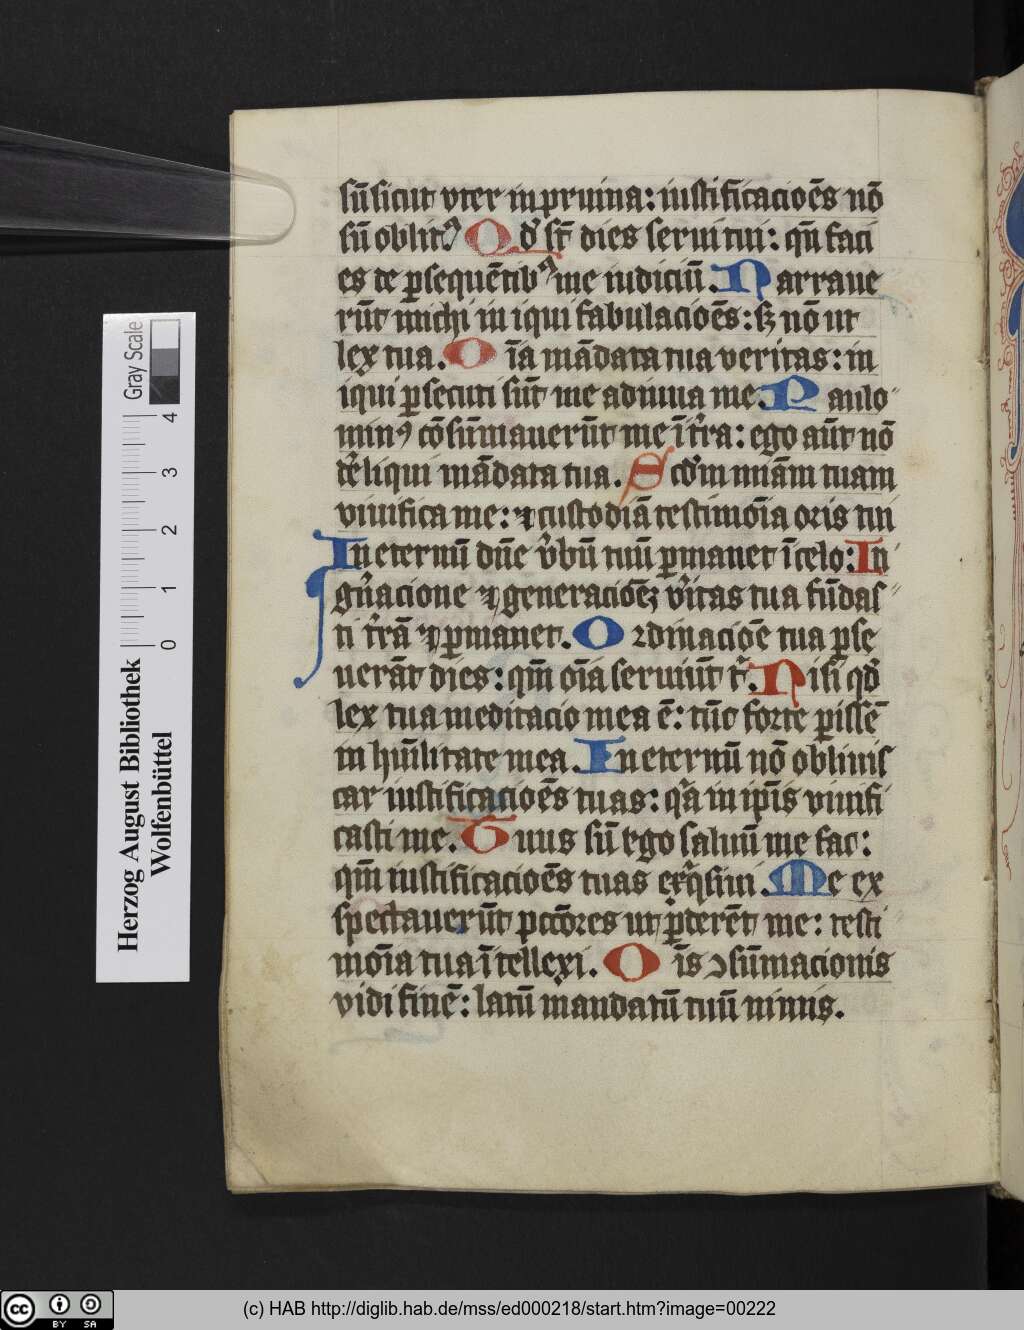 sū sicut vter in pruina: iustificacioēs nō
sū oblitꝰ Qd' sūt dies serui tui: qn̄ faci
es te ꝑsequētibꝰ me iudiciū. Narraue
rūt michi in iqui fabulacioēs: sꝫ nō ut
lex tua. Oīa mādata tua veritas: in
iqui ꝑsecuti sūt me adiuua me. Paulo
minꝰ cōsūmauerūt me ī tr̄a: ego aūt nō
de'liqui mādata tua. Scd'm mīam tuam
viuifica me: ⁊ custodiā testimoīa oris tui
In eternū dn̄e v'bū tuū ꝑmanet ī celo: In
gn̄'acione ⁊ generacioēꝫ v'itas tua fūdas
ti tr̄ā ⁊ ꝑmanet. Ordinacioē tua ꝑse
uerāt dies: qm̄ oīa seruiūt t'. Nisi qd'
lex tua meditacio mea ē: tūc forte ꝑissē
in hūilitate mea. In eternū nō obliuis
car iustificacioēs tuas: qa in ip̄is viuifi
casti me. Tuus sū ego saluū me fac:
qm̄ iustificacioēs tuas exqsiui. Me ex
spectauerūt pctōres ut ꝑderēt me: testi
moīa tua ītellexi. Oīs ↄsūmacionis
vidi finē: latū mandatū tuū nimis.
Gray Scale
0 1 2 3 4
Herzog August Bibliothek
Wolfenbüttel
cc BY SA
(c) HAB http://diglib.hab.de/mss/ed000218/start.htm?image=00222